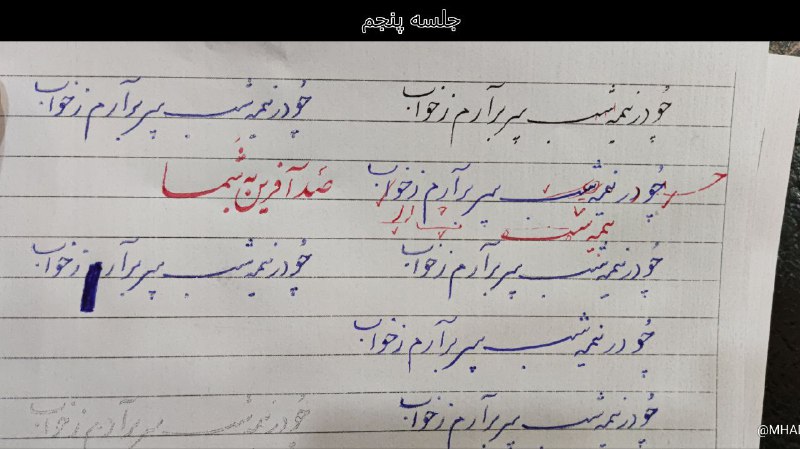 جلسه پنجم
چو در نیمه شب سر برآرم ز خواب
چو در نیمه شب سر برآرم ز خواب
چو در نیمه شب سر برآرم ز خواب
صد آفرین به شما
نیمه شب
چو در نیمه شب سر برآرم ز خواب
چو در نیمه شب سر برآرم ز خواب
چو در نیمه شب سر برآرم ز خواب
چو در نیمه شب سر برآرم ز خواب
چو در نیمه شب سر برآرم ز خواب
@MHA